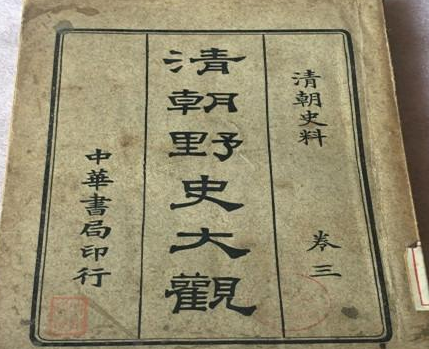 清朝史料
卷三
清朝野史大觀
中華書局印行